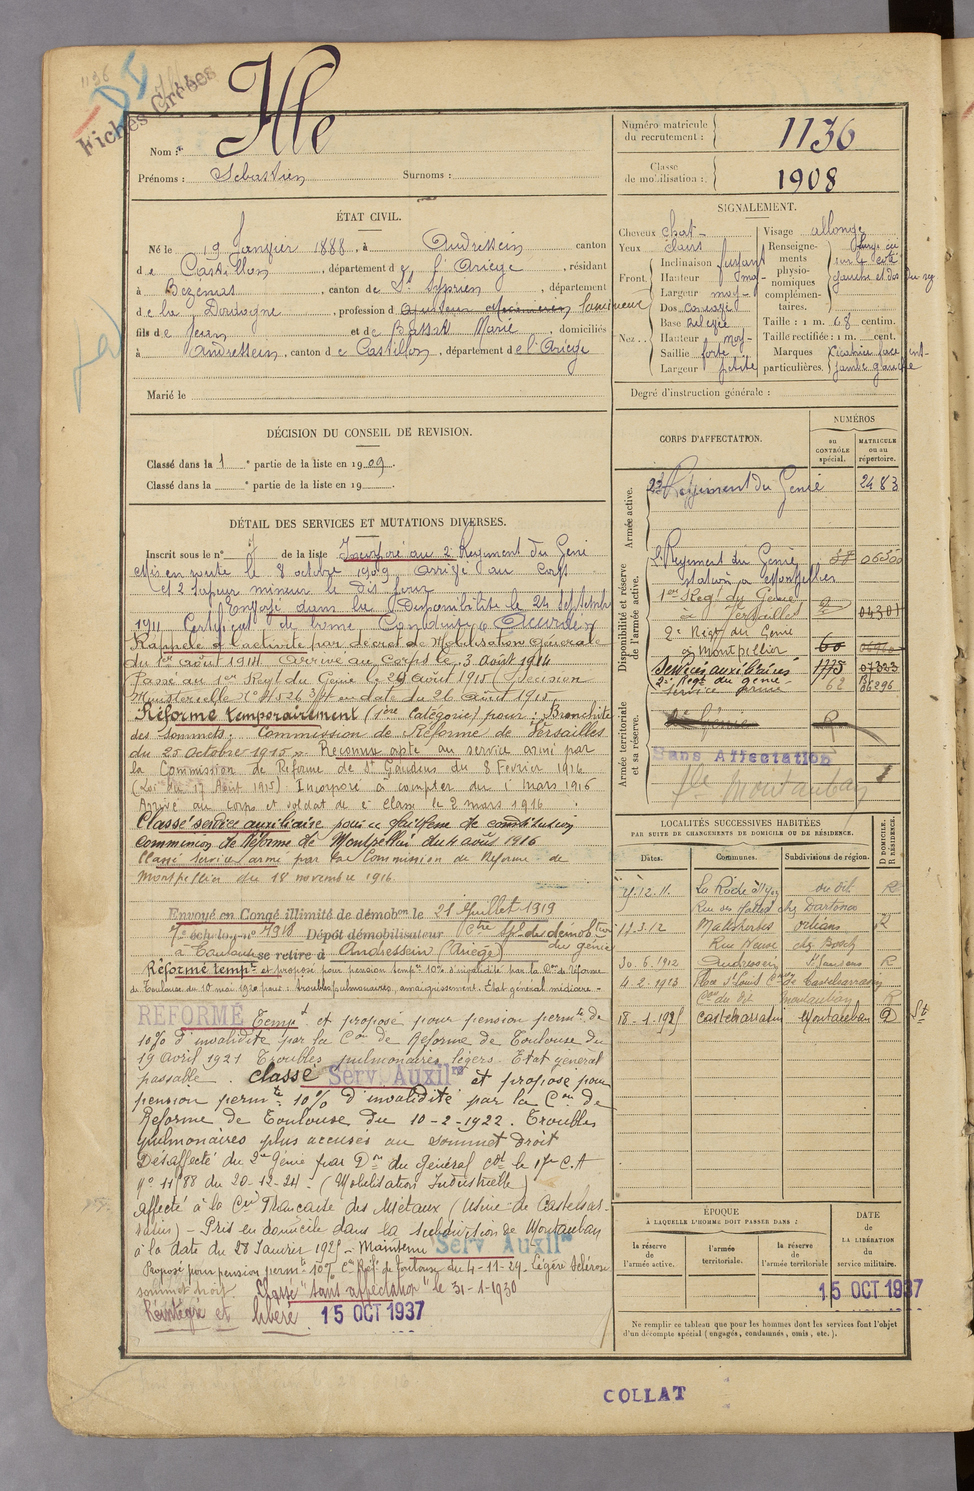 1136
Fiches Créées
Nom :
Prénoms : Sebastien Surnoms :
Numéro matricule du recrutement : 1136
Classe de mobilisation : 1908
ÉTAT CIVIL.
Né le 19 Janvier 1888, à Andressein canton
de Castillon, département de l'Ariège, résidant
à Bezenas, canton de St Cyprien, département
de la Dordogne, profession d
fils de Jean et de Marie, domiciliés
à Andressein, canton de Castillon, département de l'Ariège
Marié le
SIGNALEMENT.
Cheveux chat-
Yeux clairs
Front
Inclinaison fuyant
Hauteur moy-
Largeur moy-
Nez
Dos
Base relevée
Hauteur moy-
Saillie forte
Largeur petite
Visage allongé
Renseignements physionomiques complémentaires.
Taille : 1 m. 68 centim.
Taille rectifiée : 1 m. cent.
Marques particulières. Cicatrice
jambe gauche
Degré d'instruction générale :
DÉCISION DU CONSEIL DE REVISION.
Classé dans la 1e partie de la liste en 1909.
Classé dans la e partie de la liste en 19 .
DÉTAIL DES SERVICES ET MUTATIONS DIVERSES.
Inscrit sous le n° de la liste Incorporé au 2e Régiment du Génie
Mis en route le 8 octobre 1909, Arrivé au corps
et 2e sapeur mineur le dit jour
Envoyé dans la Disponibilité le 24 Septembre
1911 Certificat de bonne Conduite Accordé
Rappelé à l'activité par décret de Mobilisation Générale
du 1er août 1914. Arrivé au Corps le 3 Août 1914
Passé au 1er Regt du Génie le 29 août 1915 (Décision
Ministérielle No 4526 3/4 en date du 26 août 1915
Réformé temporairement (1ère Catégorie) pour : Bronchite
des Sommets. Commission de Réforme de Versailles
du 25 octobre 1915. Reconnu apte au service armé par
la Commission de Réforme de St Gaudens du 8 Février 1916
(Loi du 17 Août 1915) Incorporé à compter du 1 mars 1916
Arrivé au corps et soldat de 2e classe le 2 mars 1916
Classé service auxiliaire pour faiblesse de constitution
Commission de Réforme de Montpellier du 4 août 1916
Classé service armé par la Commission de Réforme de
Montpellier du 18 novembre 1916
Envoyé en Congé illimité de démobon le 21 Juillet 1919
7e échelon no 7918 Dépôt démobilisateur Ctre Spl du démobtion
à Toulouse se retire à Andressein (Ariège) du génie
Réformé tempt et proposé pour pension temp. 10% d'invalidité par la Con de Réforme
de Toulouse du 10 mai 1920 pour : troubles pulmonaires, amaigrissement. Etat général médiocre -
REFORMÉ Tempt et proposé pour pension permte de
10% d'invalidité par la Con de Réforme de Toulouse du
19 avril 1921 Troubles pulmonaires légers. Etat général
passable. classé Serv. Auxilre et proposé pour
pension permte 10% d'invalidité par la Con de
Réforme de Toulouse du 10-2-1922. Troubles
pulmonaires plus accusés au sommet droit
Désaffecté du 2e Génie par Don du Général Cdt le 17e C.A
No 11788 du 20-12-24 - (Mobilisation Industrielle)
Affecté à la Cie Française des Métaux (Usine de Castelsar-
rasin) - Pris en domicile dans la subdivision de Montauban
à la date du 28 Janvier 1925 - Maintenu Serv Auxilre
Proposé pour pension permte 10% Con Réf. de Toulouse du 4-11-29. Légère Sclérose
sommet droit. Classé "sans affectation" le 31-1-1930
Réintégré et libéré 15 OCT 1937
CORPS D'AFFECTATION.
NUMÉROS
au CONTRÔLE spécial.
MATRICULE ou au répertoire.
Armée active.
2e Régiment du Génie 2483
Disponibilité et réserve de l'armée active.
2e Régiment du Génie
Station à Montpellier
1er Reg du Génie
à Versailles 04301
2e Régt du Génie
à Montpellier 60
Services auxiliaires 1775 07323
2e Regt du génie
service armé 62 36296
Armée territoriale et sa réserve.
2e Génie
Sans Affectation
Montauban
LOCALITÉS SUCCESSIVES HABITÉES
PAR SUITE DE CHANGEMENTS DE DOMICILE OU DE RÉSIDENCE.
Dates. Communes. Subdivisions de région. D DOMICILE. R RÉSIDENCE.
4.12.11. La Roche s/ Yon du dit R
Rue des Halles chez Dartona
17.3.12 Malesherbes Orléans R
Rue Neuve chez Bosch
30.6.1912 Andressein St Gaudens R
4-2-1913 Rue St Louis Con de Castelsarrasin
Con du dit Montauban R
18-1-1925 Castelsarrasin Montauban D
ÉPOQUE
À LAQUELLE L'HOMME DOIT PASSER DANS :
la réserve de l'armée active.
l'armée territoriale.
la réserve de l'armée territoriale
DATE de LA LIBÉRATION du service militaire.
15 OCT 1937
Ne remplir ce tableau que pour les hommes dont les services font l'objet
d'un décompte spécial (engagés, condamnés, omis, etc.).
COLLAT